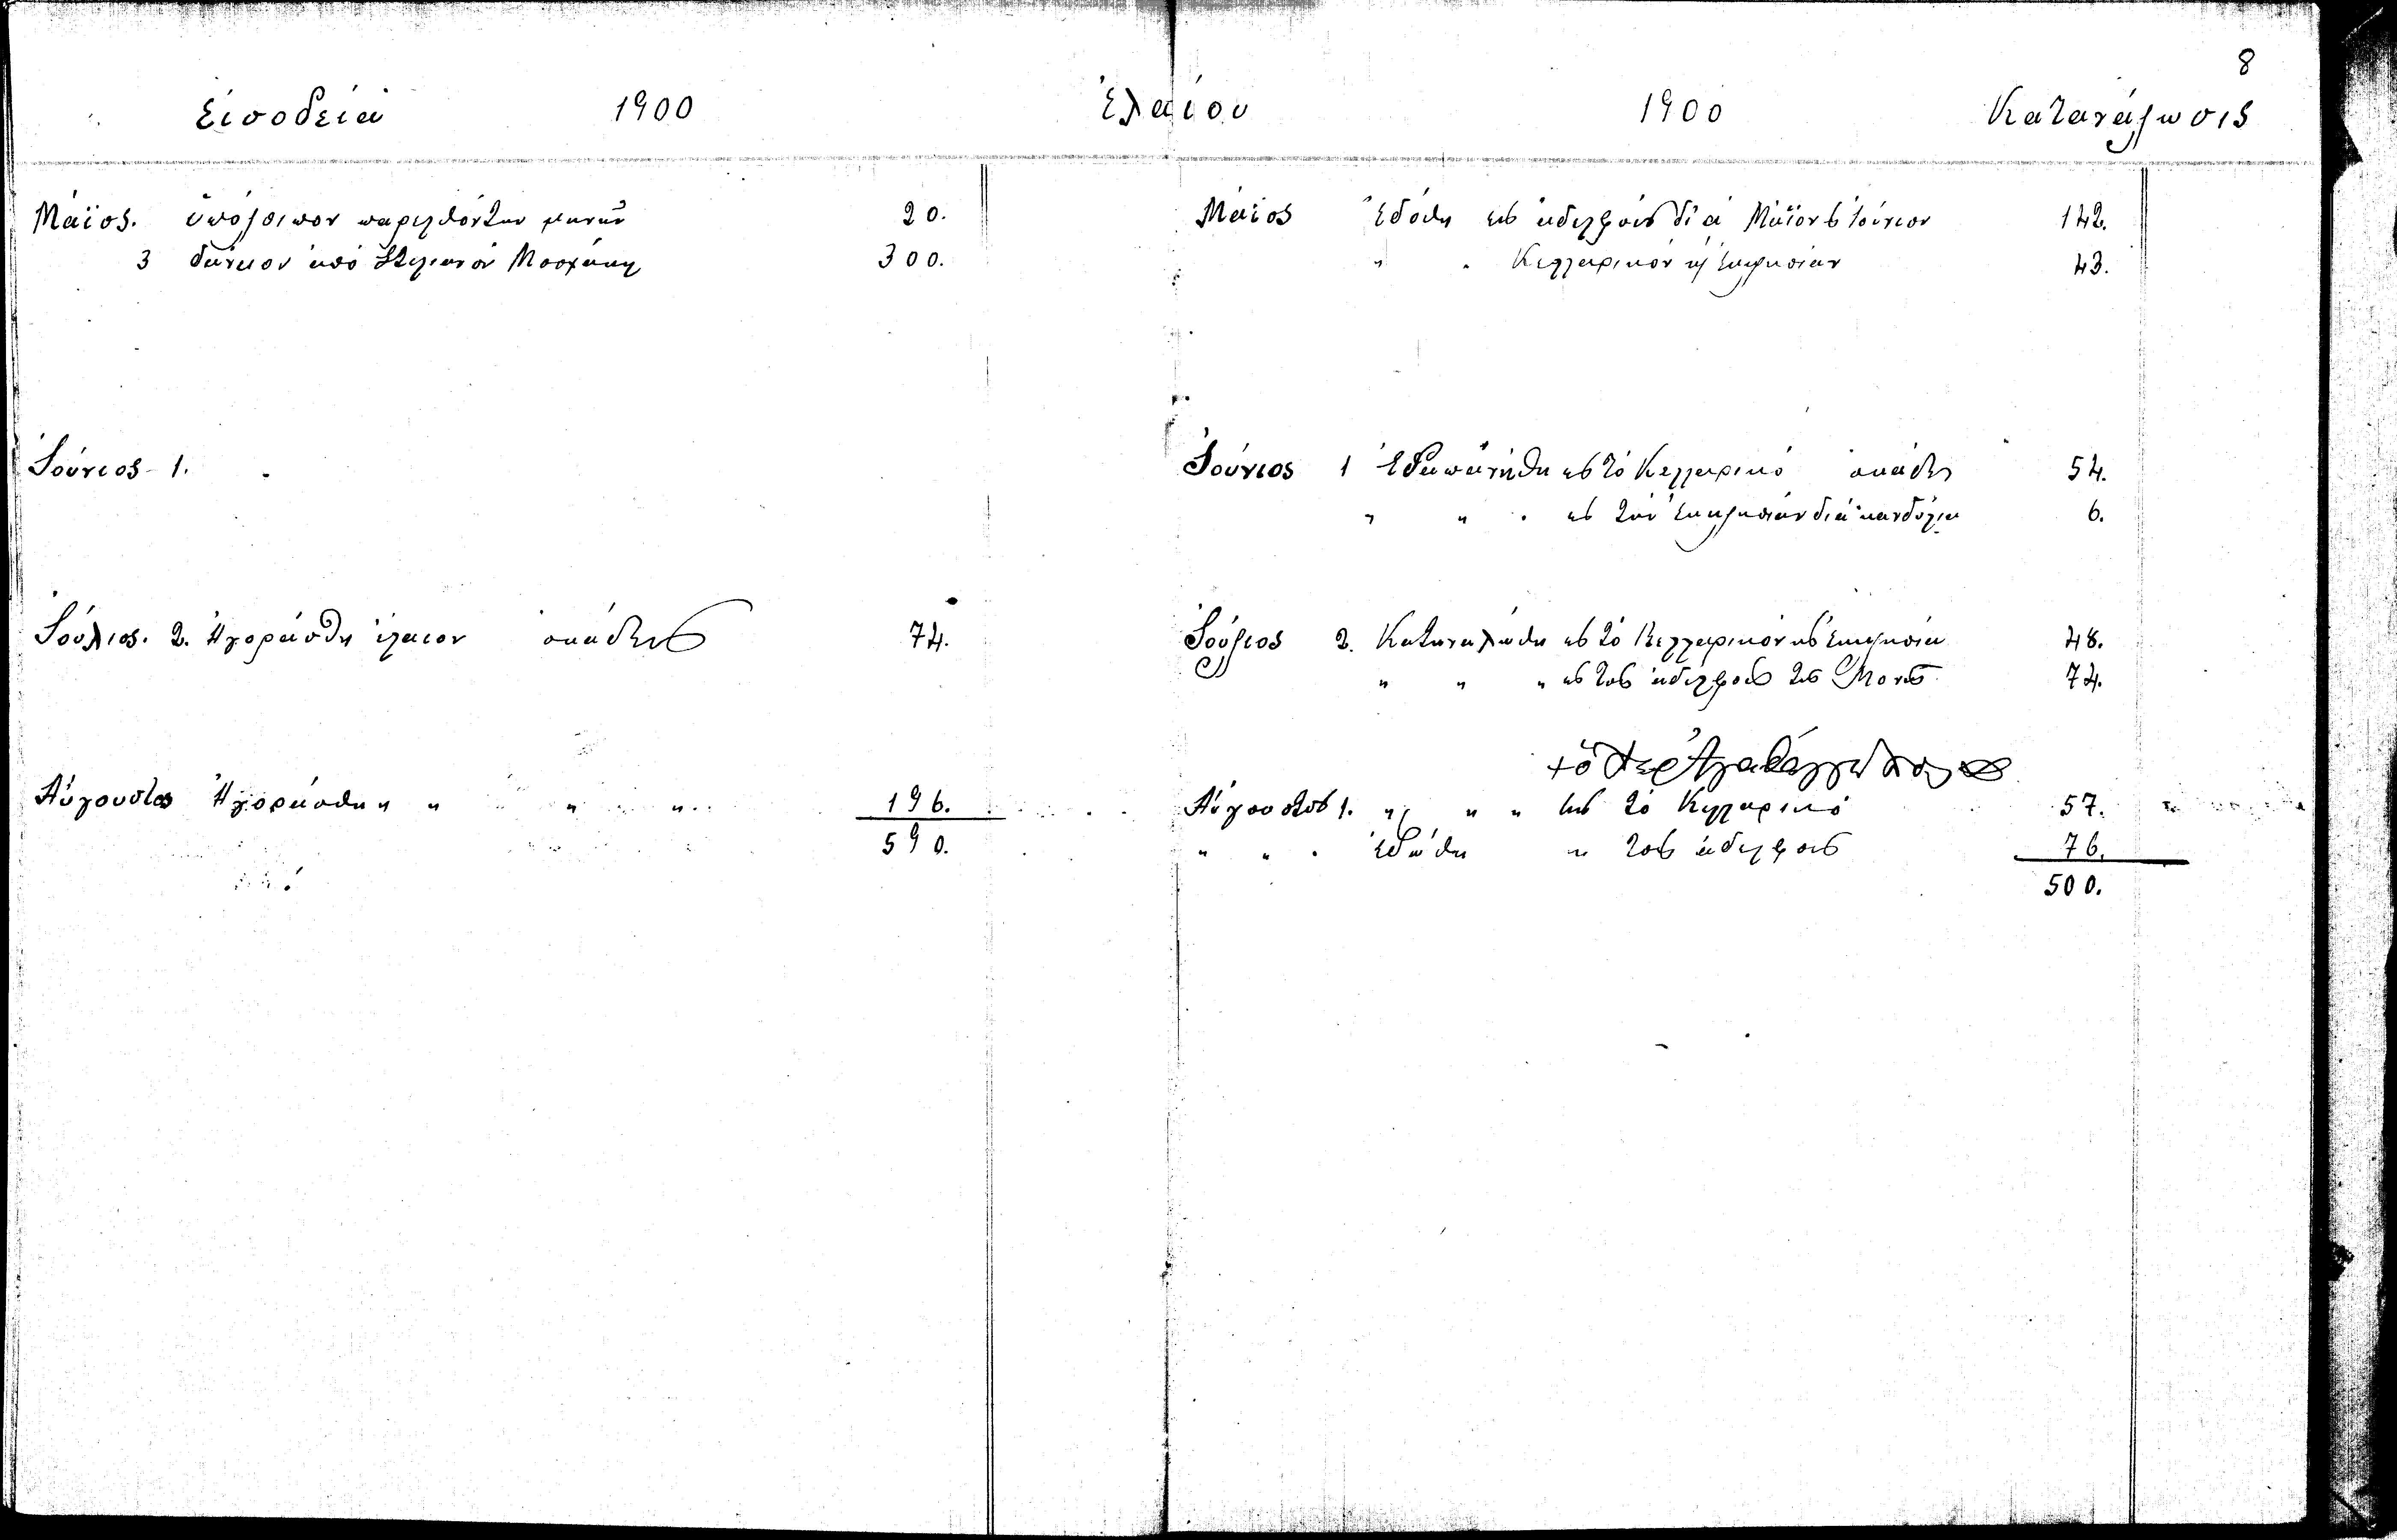 8
Εἰσοδεία 1900 Ἐλαίου 1900 Κατανάλωσις
Μάϊος. ὑπόλοιπον παρελθόντων μηνῶν 20.
3 δάνειον ἀπό Στυλιανόν Μοσχάκη 300.
Ἰούνιος 1.
Ἰούλιος. 2. Ἠγοράσθη ἔλαιον ὀκάδες 74.
Αὔγουστος Ἠγοράσθη " " " " 196.
590.
Μάϊος Ἐδόθη εἰς ἀδελφούς διά Μάϊον & Ἰούνιον 142.
" " Κελλαρικόν & Ἐκκλησίαν 43.
Ἰούνιος 1 Ἐδαπανήθη εἰς τό Κελλαρικό ὀκάδες 54.
" " " εἰς τήν Ἐκκλησίαν διά κανδύλια 6.
Ἰούλιος 2. Κατηναλώθη εἰς τό Κελλαρικόν & Ἐκκλησία 48.
" " " εἰς τούς ἀδελφούς τῆς Μονῆς 74.
Αὔγουστος 1. " " " εἰς τό Κελλαρικό 57.
" " " Ἐδόθη " τούς ἀδελφούς 76.
500.